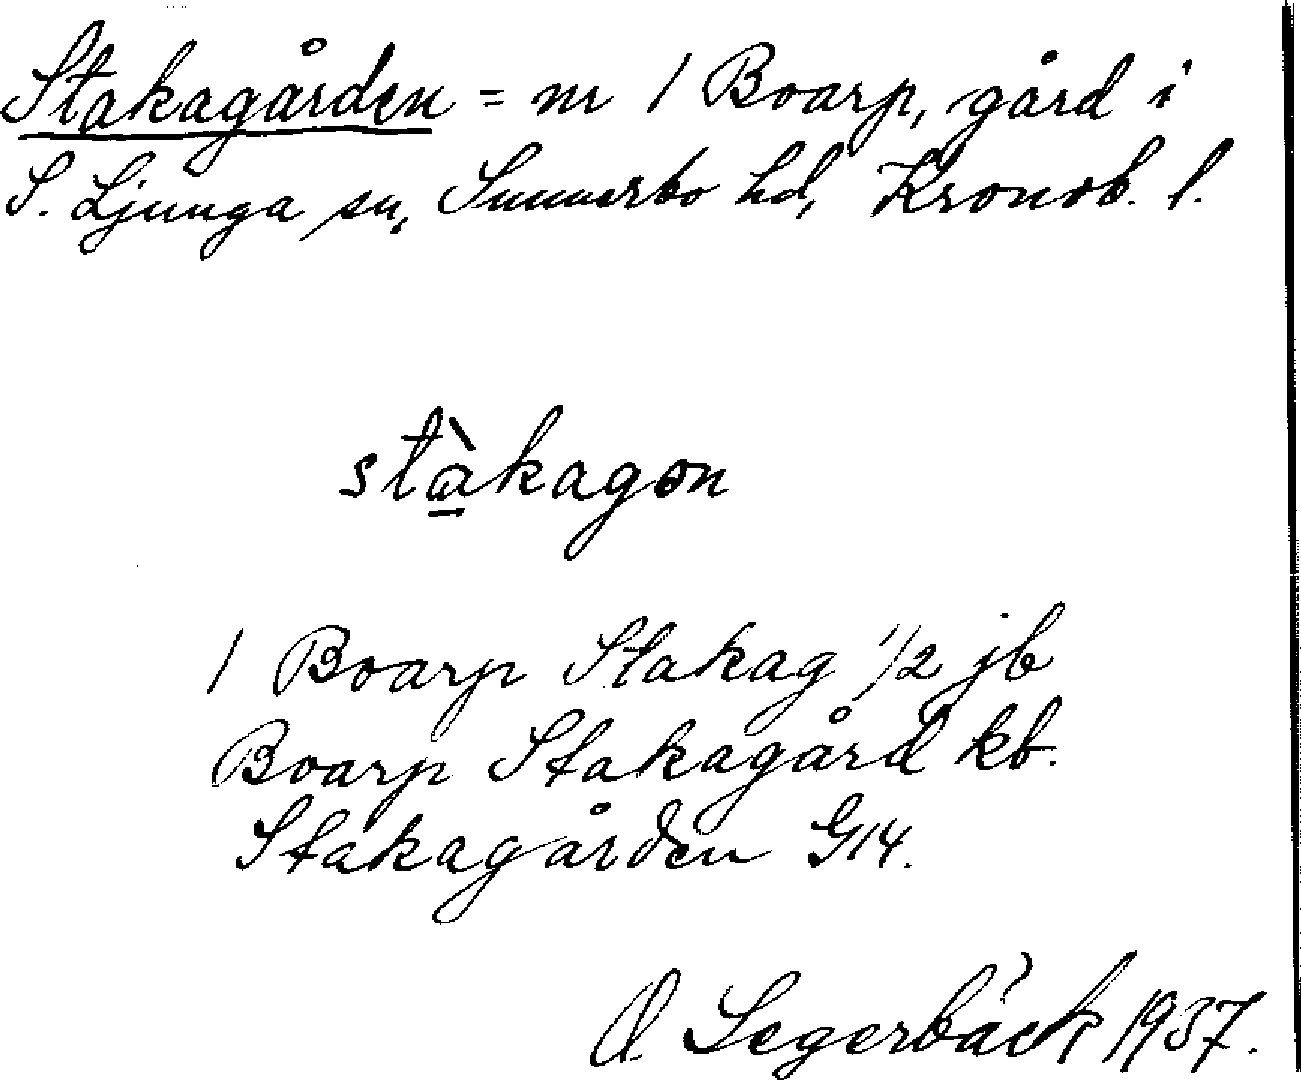 Stakagården = nr 1 Boarp, gård i
S. Ljunga sn, Sunnerbo hd, Kronob. l.
stàkagɷn
1 Boarp Stakag 1/2 jb
Boarp Stakagård kb.
Stakagården G14.
O. Segerbäck 1937.